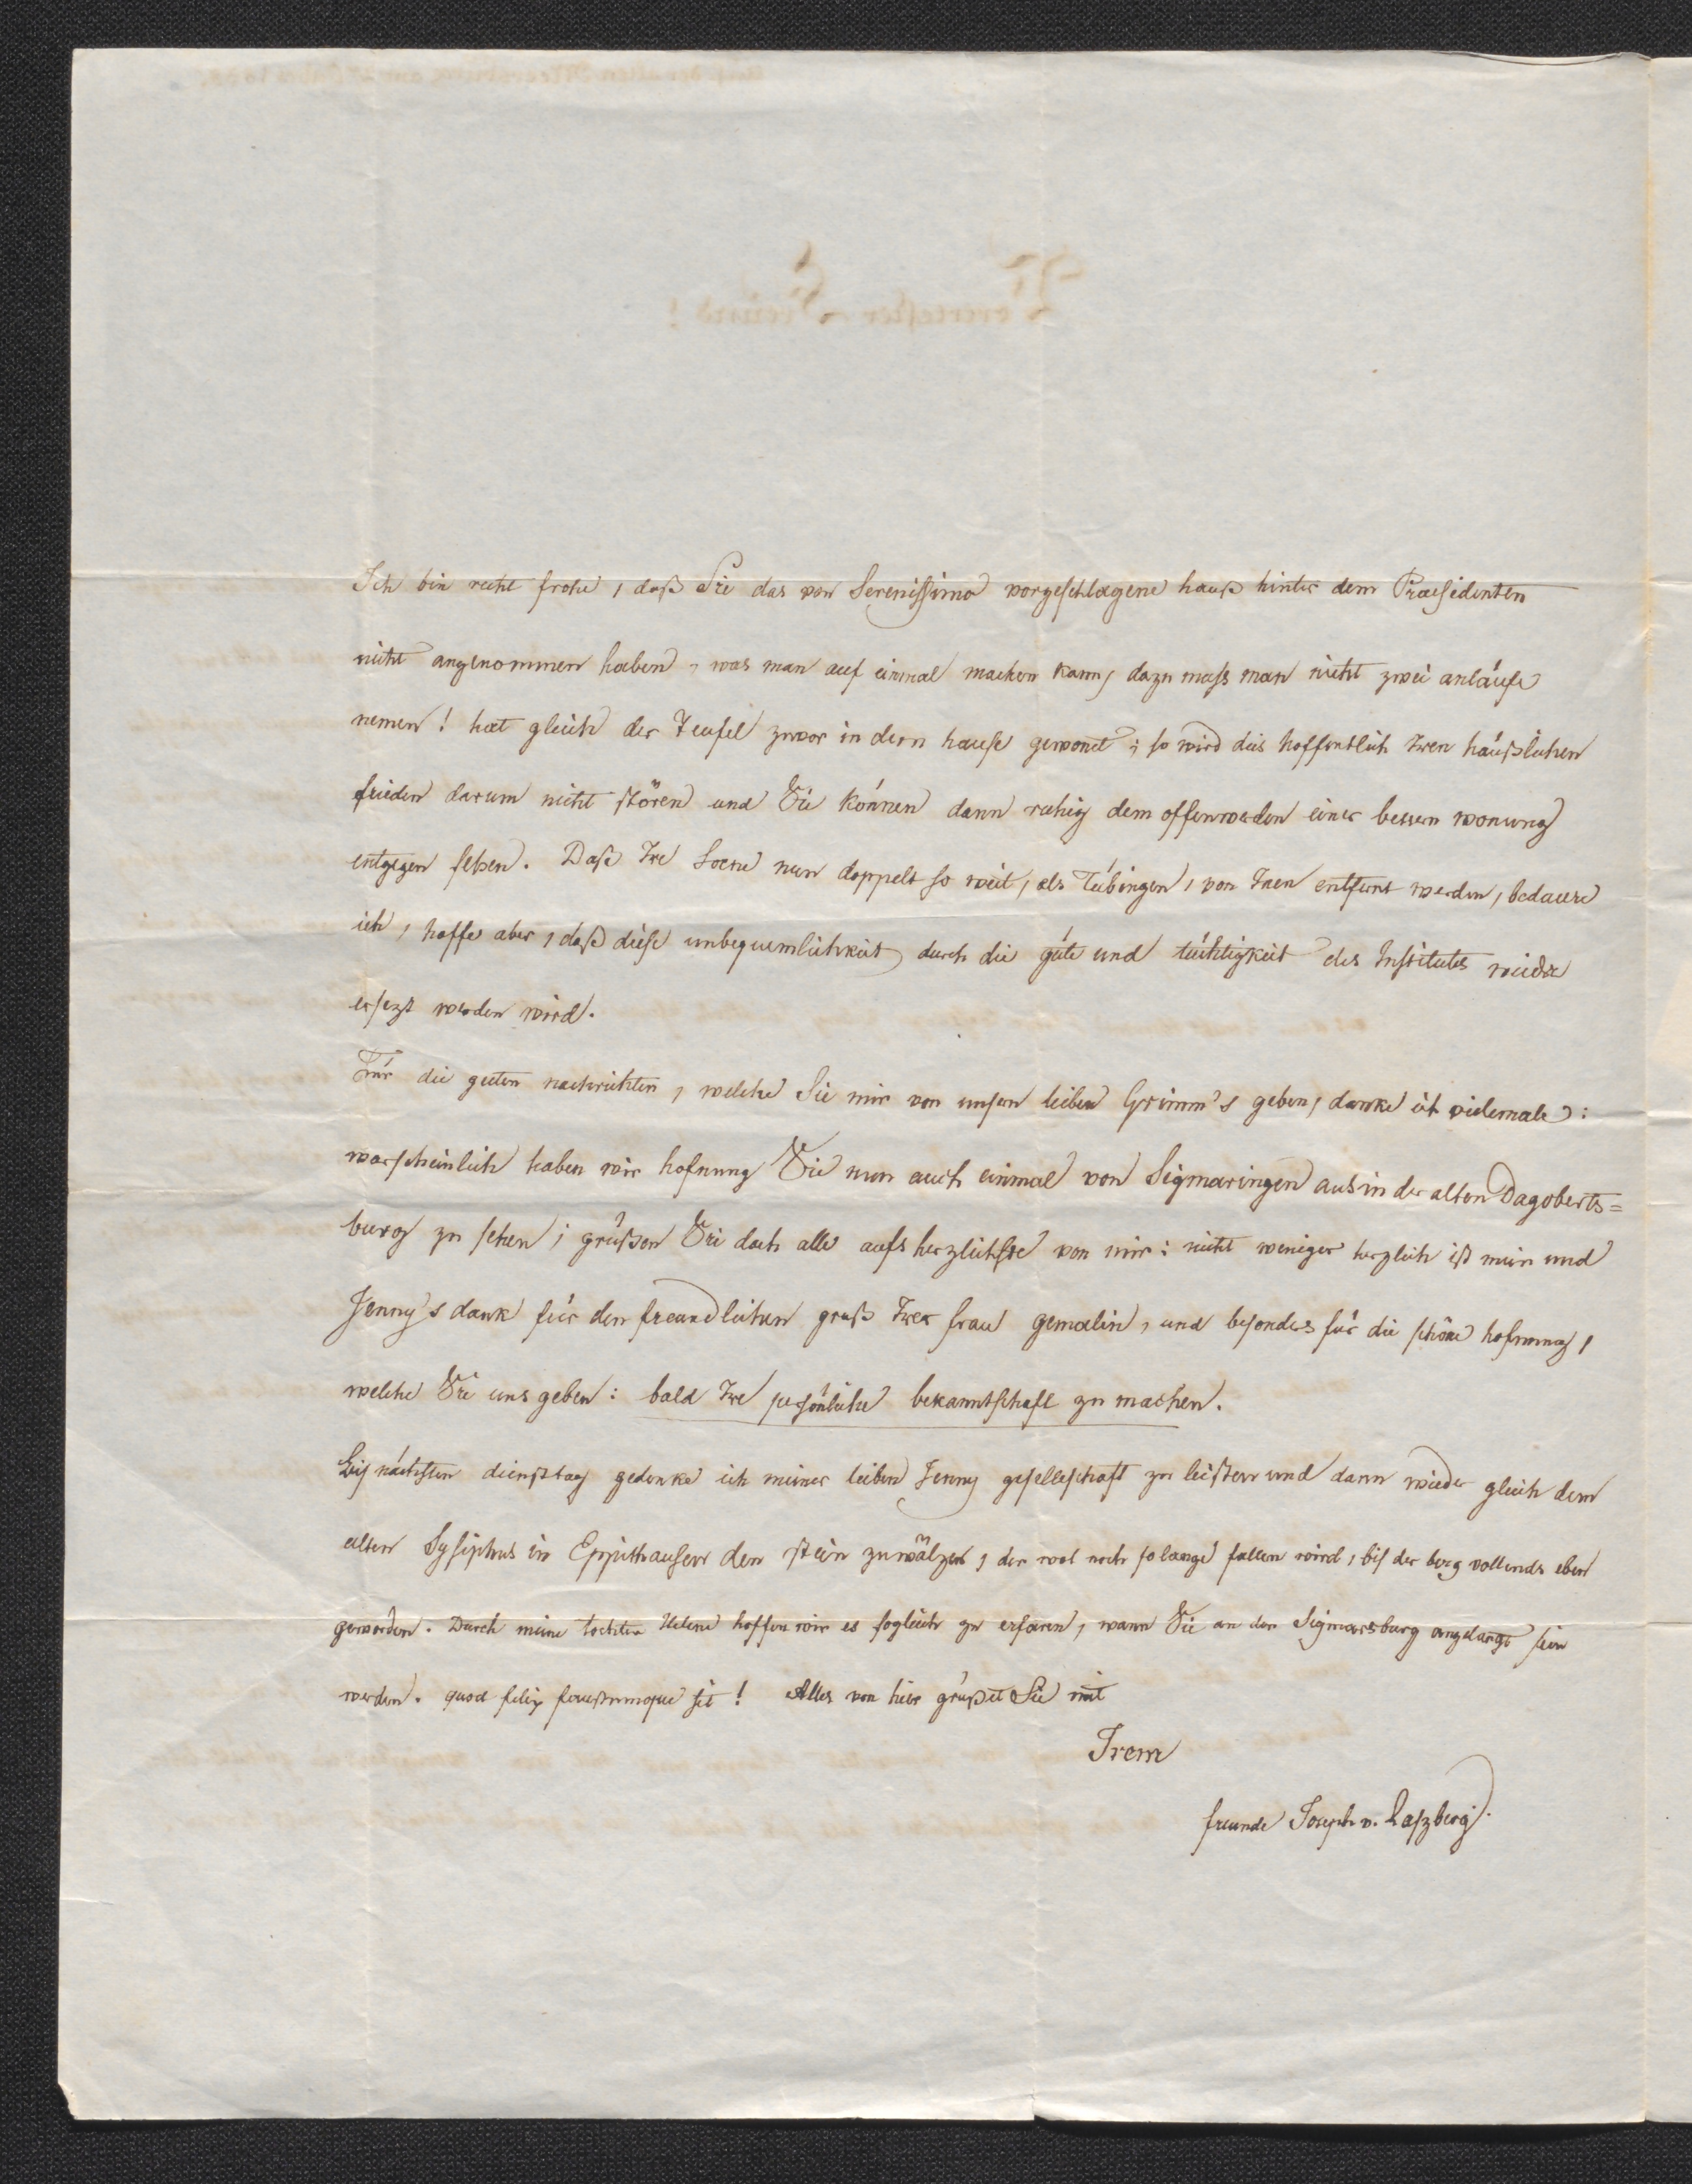 Ich bin recht frohe, daß Sie das von Serenissimo vorgeschlagene hauß hinter dem Praesidenten
nicht angenommen haben, was man auf einmal machen kann, dazu muss man nicht zwei anläufe
nemen! hat gleich der Teufel zuvor in dem hause gewont; so wird dies hoffentlich Iren häußlichen
frieden darum nicht stören und Sie können dann ruhig dem offenwerden einer bessern wonung
entgegen sehen. Daß Ire Soene nun doppelt so weit, als Tübingen, von Inen entfernt werden, bedaure
ich, hoffe aber, daß diese unbequemlichkeit durch die güte und tüchtigkeit des Institutes wieder
ersezt werden wird.
Für die guten nachrichten, welche Sie mir von unsern lieben Grimm's geben, danke ich vielemale:
warscheinlich haben wir hofnung Sie nun auch einmal von Sigmaringen aus in der alten Dagoberts=
burg zu sehen; grüßen Sie doch alle aufs herzlichste von mir: nicht weniger herzlich ist mein und
Jenny's dank für den freundlichen gruß Irer frau gemalin, und besonders für die schöne hofnung,
welche Sie uns geben: bald Ire persönliche bekanntschaft zu machen.
Bis nächsten dienstag gedenke ich meiner lieben Jenny gesellschaft zu leisten und dann wieder gleich dem
alten Sysiphus in Eppishausen den stein zu wälzen, der wol noch so lange fallen wird, bis der berg vollends eben
geworden. Durch meine tochter Helene hoffen wir es sogleich zu erfaren, wann Sie an der Sigmarsburg angelangt sein
werden. quod felix faustumque sit! Alles von hier grüßet Sie mit
Irem
freunde Joseph v. Laszberg.